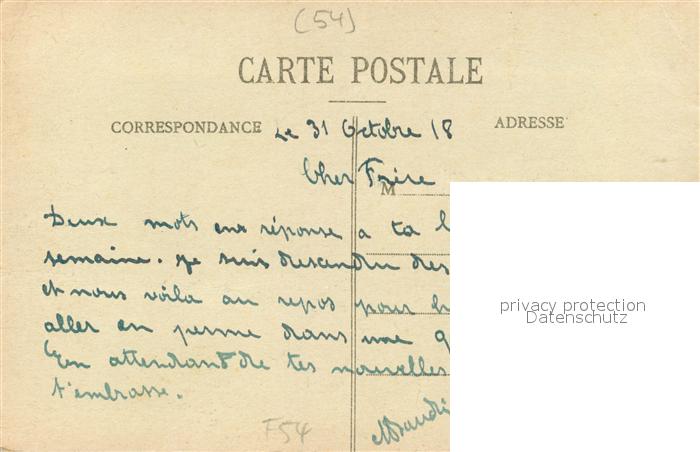 (54)
CARTE POSTALE
CORRESPONDANCE Le 31 Octobre 18 ADRESSE
Cher Frère
M
Deux mots en réponse a ta
semaine. Je suis descendu des
et nous voila au repos pour
aller en perme dans une
En attendant de tes nouvelles
t'embrasse.
F54
privacy protection
Datenschutz